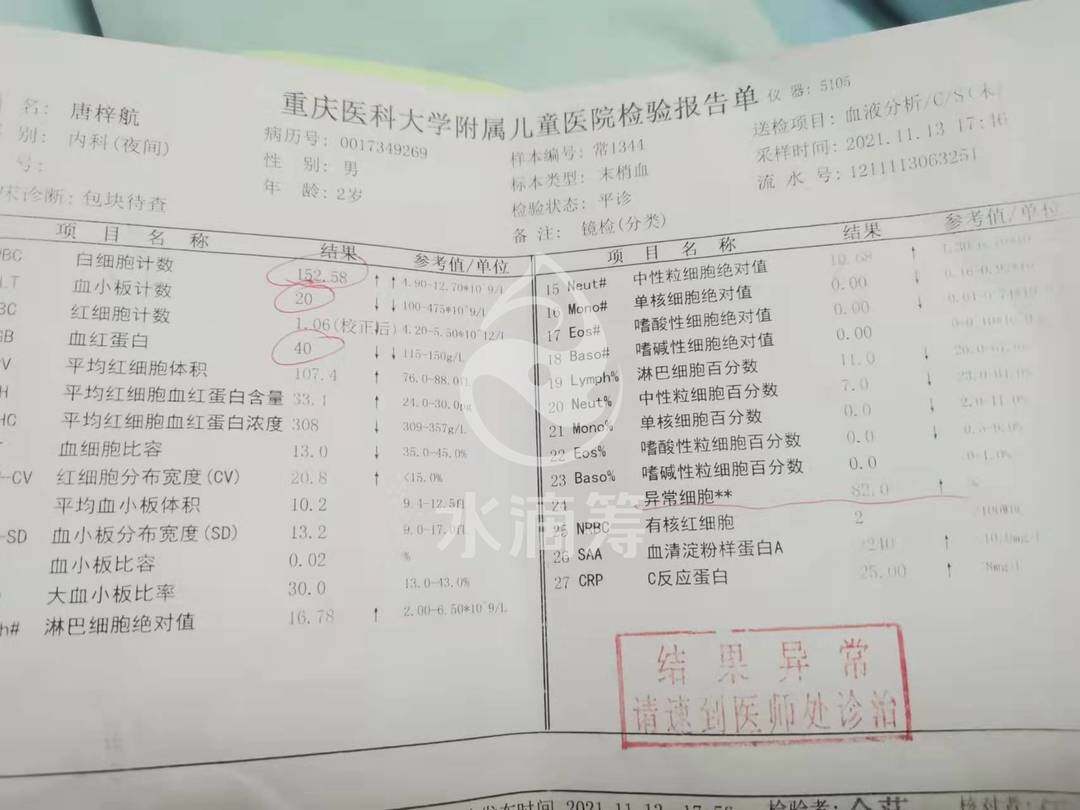 重庆医科大学附属儿童医院检验报告单 仪器: 5105
名: 唐梓航 病历号: 0017349269 样本编号: 常1344 送检项目: 血液分析/C/S(末)
别: 内科(夜间) 性 别: 男 标本类型: 末梢血 采样时间: 2021.11.13 17:46
号: 年 龄: 2岁 检验状态: 平诊 流 水 号: 1211113063251
床诊断: 包块待查 备 注: 镜检(分类)
项 目 名 称 结果 参考值/单位
白细胞计数 152.58 ↑ 4.90-12.70*10^9/L
血小板计数 20 ↓ 100-475*10^9/L
红细胞计数 1.06(校正后) ↓ 4.20-5.50*10^12/L
血红蛋白 40 ↓ 115-150g/L
平均红细胞体积 107.4 ↑ 76.0-88.0fL
平均红细胞血红蛋白含量 33.1 ↑ 24.0-30.0pg
平均红细胞血红蛋白浓度 308 ↓ 309-357g/L
血细胞比容 13.0 ↓ 35.0-45.0%
-CV 红细胞分布宽度(CV) 20.8 ↑ <15.0%
平均血小板体积 10.2 9.4-12.5fL
-SD 血小板分布宽度(SD) 13.2 9.0-17.0fL
血小板比容 0.02 %
大血小板比率 30.0 13.0-43.0%
h# 淋巴细胞绝对值 16.78 ↑ 2.00-6.50*10^9/L
项 目 名 称 结果 参考值/单位
15 Neut# 中性粒细胞绝对值 10.68 ↑
16 Mono# 单核细胞绝对值 0.00 ↓
17 Eos# 嗜酸性细胞绝对值 0.00 ↓
18 Baso# 嗜碱性细胞绝对值 0.00
19 Lymph% 淋巴细胞百分数 11.0 ↓
20 Neut% 中性粒细胞百分数 7.0 ↓
21 Mono% 单核细胞百分数 0.0 ↓ 2.0-11.0%
22 Eos% 嗜酸性粒细胞百分数 0.0 ↓
23 Baso% 嗜碱性粒细胞百分数 0.0 0-1.0%
24 异常细胞** 82.0 ↑ %
25 NRBC 有核红细胞 2 /100WBC
26 SAA 血清淀粉样蛋白A ↑
27 CRP C反应蛋白 25.00 ↑
结果异常
请速到医师处诊治
水滴筹
发布时间 2021.11.13 检验者: